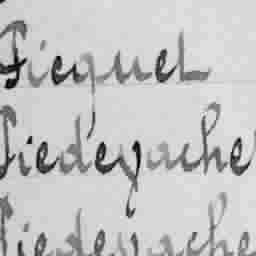 Ficquet
Piedevache
Piedevache